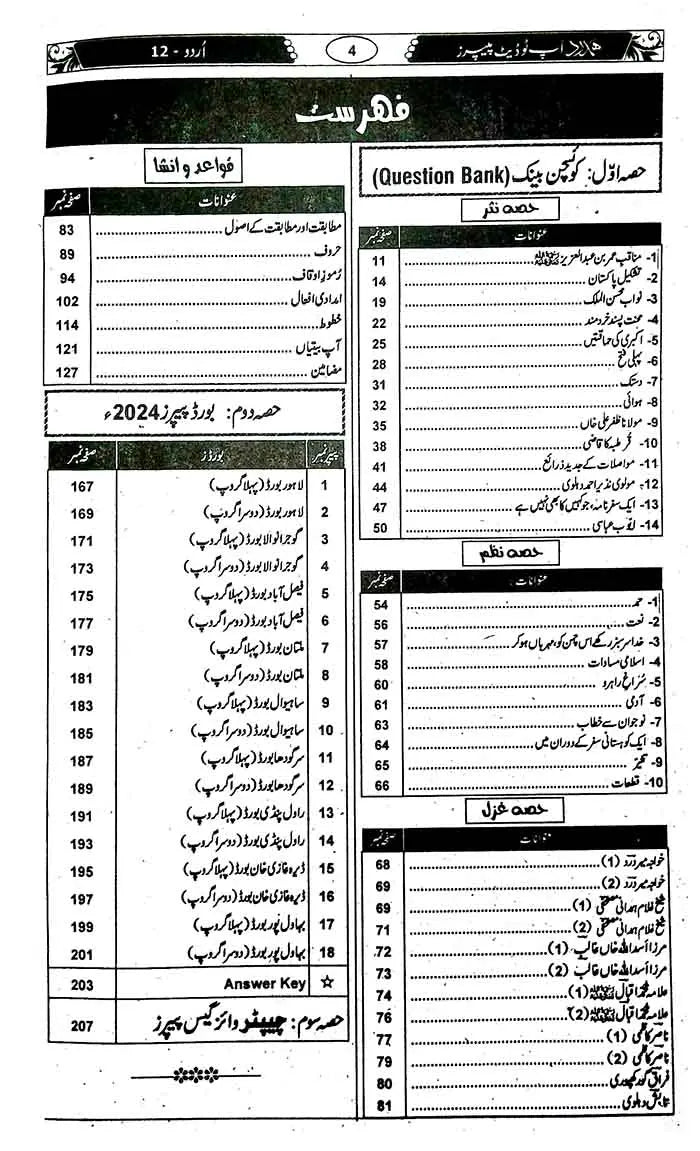 ہمدرد اَپ ٹو ڈیٹ پیپرز
4
اُردو - 12
فہرست
حصہ اوّل: کوئسچن بینک (Question Bank)
حصہ نثر
عنوانات صفحہ نمبر
1- مناقب عمر بن عبدالعزیز 11
2- تشکیلِ پاکستان 14
3- نواب محسن الملک 19
4- محنت پسند خردمند 22
5- اکبری کی حماقتیں 25
6- پہلی فتح 28
7- دستک 31
8- ہوائی 32
9- مولانا ظفر علی خاں 35
10- قرطبہ کا قاضی 38
11- مواصلات کے جدید ذرائع 41
12- مولوی نذیر احمد دہلوی 44
13- ایک سفرنامہ، جو کہیں کا بھی نہیں ہے 47
14- ایوب عباسی 50
حصہ نظم
عنوانات صفحہ نمبر
1- حمد 54
2- نعت 56
3- خدا سرسبز رکھے اس چمن کو، مہرباں ہو کر 57
4- اسلامی مساوات 58
5- سُراغِ راہرو 60
6- آدمی 61
7- نوجوان سے خطاب 63
8- ایک کوہستانی سفر کے دوران میں 64
9- 65
10- قطعات 66
حصہ غزل
عنوانات صفحہ نمبر
خواجہ میر درد (1) 68
خواجہ میر درد (2) 69
شیخ غلام ہمدانی مصحفی (1) 69
شیخ غلام ہمدانی مصحفی (2) 71
مرزا اسد اللہ خاں غالب (1) 72
مرزا اسد اللہ خاں غالب (2) 73
علامہ محمد اقبال (1) 74
علامہ محمد اقبال (2) 76
ناصر کاظمی (1) 77
ناصر کاظمی (2) 79
فراق گورکھپوری 80
تابش دہلوی 81
قواعد و انشا
عنوانات صفحہ نمبر
مطابقت اور مطابقت کے اصول 83
حروف 89
رُموزِ اوقاف 94
امدادی افعال 102
خطوط 114
آپ بیتیاں 121
مضامین 127
حصہ دوم: بورڈ پیپرز 2024ء
پیپر نمبر بورڈز صفحہ نمبر
1 لاہور بورڈ (پہلا گروپ) 167
2 لاہور بورڈ (دوسرا گروپ) 169
3 گوجرانوالا بورڈ (پہلا گروپ) 171
4 گوجرانوالا بورڈ (دوسرا گروپ) 173
5 فیصل آباد بورڈ (پہلا گروپ) 175
6 فیصل آباد بورڈ (دوسرا گروپ) 177
7 ملتان بورڈ (پہلا گروپ) 179
8 ملتان بورڈ (دوسرا گروپ) 181
9 ساہیوال بورڈ (پہلا گروپ) 183
10 ساہیوال بورڈ (دوسرا گروپ) 185
11 سرگودھا بورڈ (پہلا گروپ) 187
12 سرگودھا بورڈ (دوسرا گروپ) 189
13 راولپنڈی بورڈ (پہلا گروپ) 191
14 راولپنڈی بورڈ (دوسرا گروپ) 193
15 ڈیرہ غازی خان بورڈ (پہلا گروپ) 195
16 ڈیرہ غازی خان بورڈ (دوسرا گروپ) 197
17 بہاول پور بورڈ (پہلا گروپ) 199
18 بہاول پور بورڈ (دوسرا گروپ) 201
☆ Answer Key 203
حصہ سوم: چیپٹر وائز گیس پیپرز 207